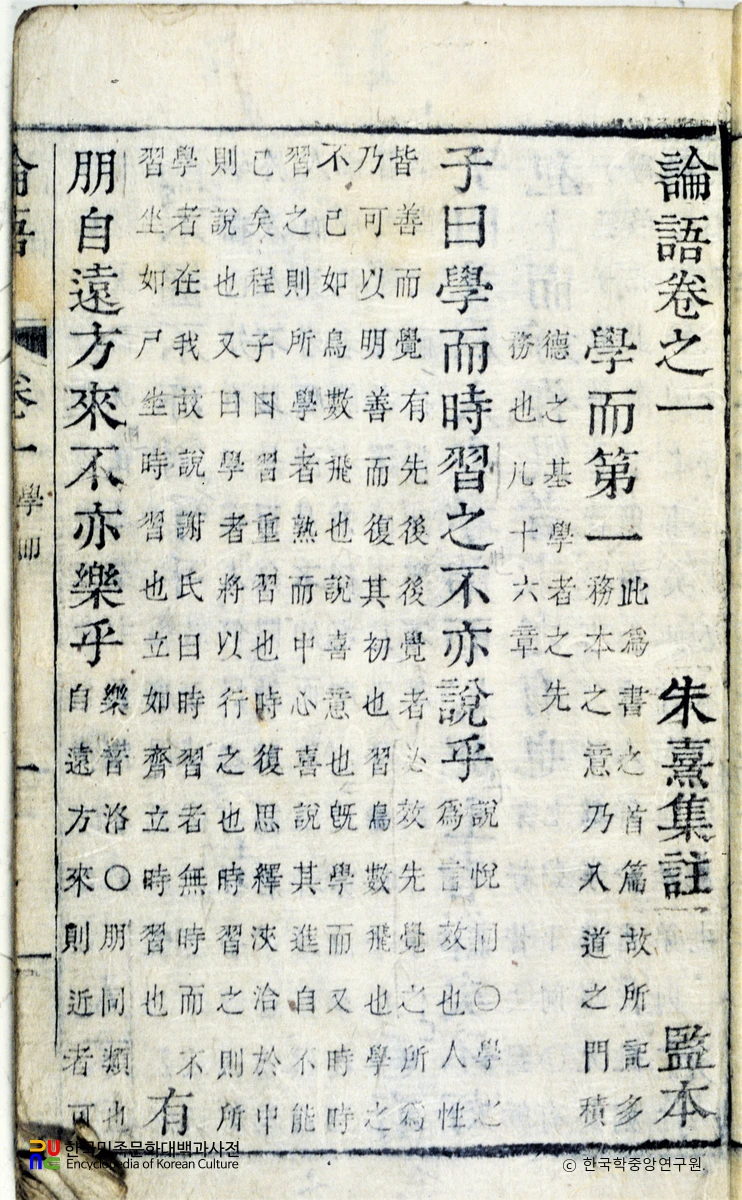 論語卷之一 朱熹集註 監本
學而第一
此爲書之首篇故所記多
務本之意乃入道之門積
德之基學者之先
務也凡十六章
子曰學而時習之不亦說乎
說悅同○學之
爲言效也人性
皆善而覺有先後後覺者必效先覺之所爲
乃可以明善而復其初也習鳥數飛也學之
不已如鳥數飛也說喜意也旣學而又時時
習之則所學者熟而中心喜說其進自不能
已矣程子曰習重習也時復思繹浹洽於中
則說也又曰學者將以行之也時習之則所
學者在我故說謝氏曰時習者無時而不
習坐如尸坐時習也立如齊立時習也
有
朋自遠方來不亦樂乎
樂音洛○朋同類也
自遠方來則近者可
論語 卷一 學而 一
한국민족문화대백과사전
Encyclopedia of Korean Culture
© 한국학중앙연구원